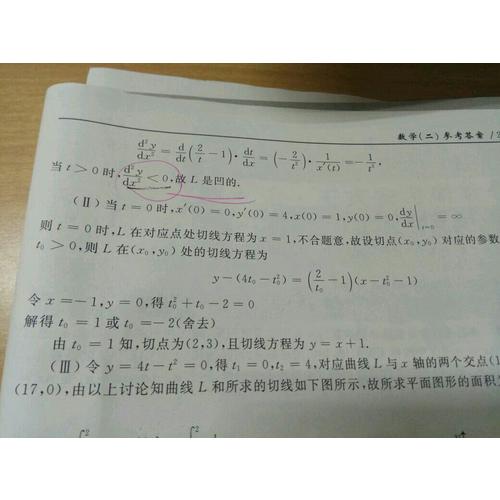 数学(二)参考答案 /
d²y/dx² = d/dt(2/t − 1)·dt/dx = (−2/t²)·1/x′(t) = −1/t³.
当 t > 0 时, d²y/dx² < 0, 故 L 是凹的.
(Ⅱ) 当 t = 0 时, x′(0) = 0, y′(0) = 4, x(0) = 1, y(0) = 0, dy/dx|ₜ₌₀ = ∞
则 t = 0 时, L 在对应点处切线方程为 x = 1, 不合题意, 故设切点(x₀, y₀) 对应的参数
t₀ > 0, 则 L 在(x₀, y₀) 处的切线方程为
y − (4t₀ − t₀²) = (2/t₀ − 1)(x − t₀² − 1)
令 x = −1, y = 0, 得 t₀² + t₀ − 2 = 0
解得 t₀ = 1 或 t₀ = −2(舍去)
由 t₀ = 1 知, 切点为(2,3), 且切线方程为 y = x + 1.
(Ⅲ) 令 y = 4t − t² = 0, 得 t₁ = 0, t₂ = 4, 对应曲线 L 与 x 轴的两个交点(1
(17,0), 由以上讨论知曲线 L 和所求的切线如下图所示, 故所求平面图形的面积